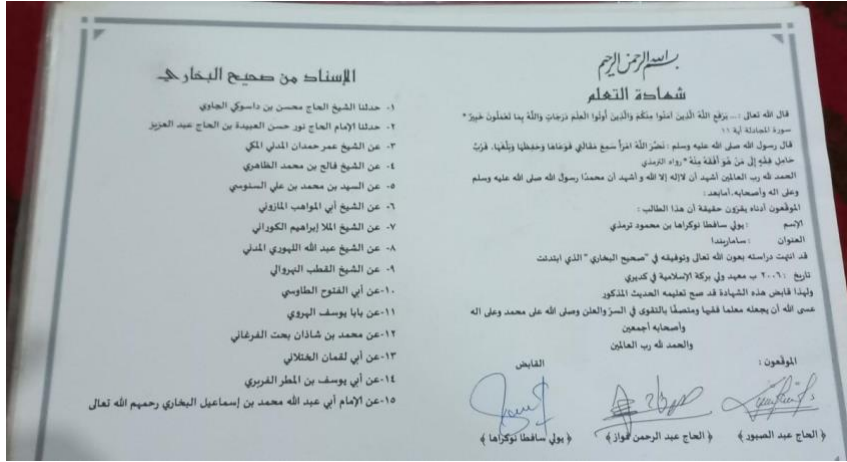 بسم الله الرحمن الرحيم
شهادة التعلم
قال الله تعالى : ... يرفع اللهُ الَّذِينَ آمَنُوا مِنكُم وَالَّذِينَ أُوتُوا العِلمَ دَرَجَاتٍ وَاللَّهُ بِمَا تَعمَلُونَ خَبِيرٌ *
سورة المجادلة آية ١١
قال رسول الله صلى الله عليه وسلم : نضّر اللهُ امرَأً سَمِعَ مَقَالَتِي فَوَعَاهَا وَحَفِظَهَا وَبَلَّغَهَا. فَرُبَّ
حَامِلِ فِقْهٍ إِلَى مَنْ هُوَ أَفْقَهُ مِنْهُ * رواه الترمذي
الحمد لله رب العالمين أشهد أن لاإله إلا الله و أشهد أن محمدًا رسول الله صلى الله عليه وسلم
وعلى اله وأصحابه، أمابعد :
الموقّعون أدناه يقرّون حقيقة أن هذا الطالب :
الإسم : يولي سافطا نوكراها بن محمود ترمذي
العنوان : ساماريندا
قد انتهت دراسته بعون الله تعالى وتوفيقه في "صحيح البخاري" الذي ابتدئت
تاريخ : ٢٠٠٦ ب معهد ولي بركة الإسلامية في كديري
ولهذا قابض هذه الشهادة قد صح تعليمه الحديث المذكور
عسى الله أن يجعله معلما فقيها ومتصفًا بالتقوى في السرّ والعلن وصلى الله على محمد وعلى اله
وأصحابه أجمعين
والحمد لله رب العالمين
الموقّعون : القابض
﴿ الحاج عبد الصبور ﴾ ﴿ الحاج عبد الرحمن فواز ﴾ ﴿ يولي سافطا نوكراها ﴾
الإسناد من صحيح البخاري
١- حدثنا الشيخ الحاج محسن بن داسوكي الجاوي
٢- حدثنا الإمام الحاج نور حسن العبيدة بن الحاج عبد العزيز
٣- عن الشيخ عمر حمدان المدني المكي
٤- عن الشيخ فالح بن محمد الظاهري
٥- عن السيد بن محمد بن علي السنوسي
٦- عن الشيخ أبي المواهب المازوني
٧- عن الشيخ الملا إبراهيم الكوراني
٨- عن الشيخ عبد الله اللهوري المدني
٩- عن الشيخ القطب النهروالي
١٠-عن أبي الفتوح الطاوسي
١١-عن بابا يوسف الهروي
١٢-عن محمد بن شاذان بحت الفرغاني
١٣-عن أبي لقمان الختلاني
١٤-عن أبي يوسف بن المطر الفربري
١٥-عن الإمام أبي عبد الله محمد بن إسماعيل البخاري رحمهم الله تعالى